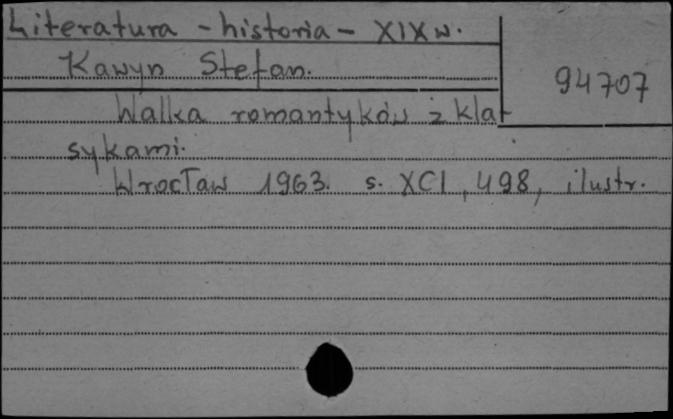 Literatura - historia - XIX w.
Kawyn Stefan.
94707
Walka romantyków z kla-
sykami.
Wrocław 1963. s. XCI, 498, ilustr.